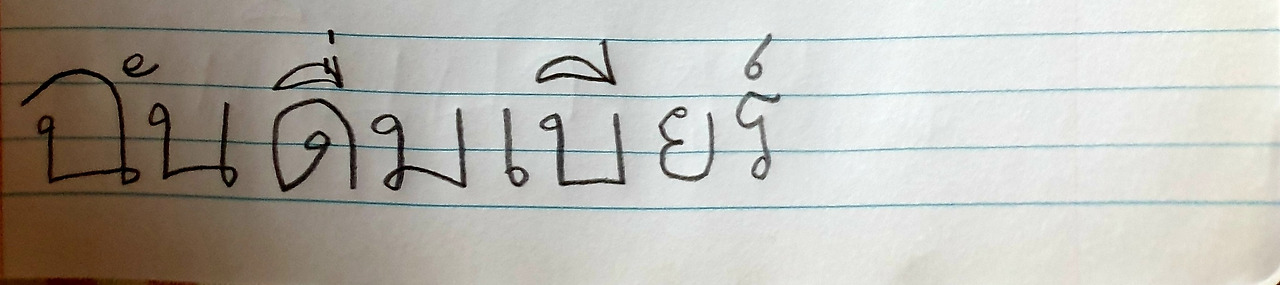 ฉันดื่มเบียร์